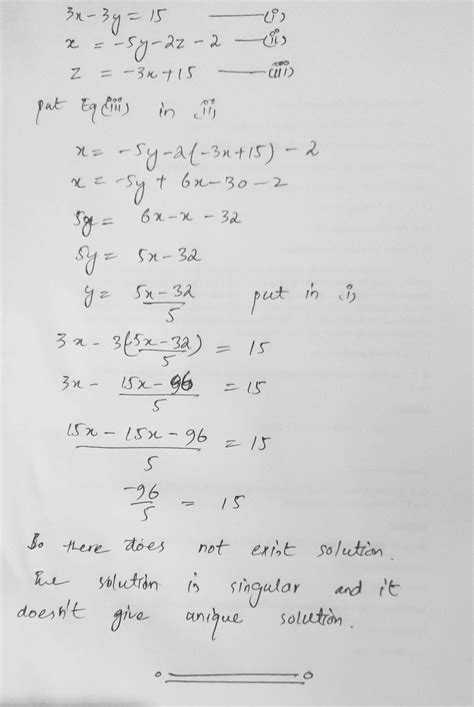 3x - 3y = 15 —— (i)
x = -5y - 2z - 2 —— (ii)
z = -3x + 15 —— (iii)
put Eq (iii) in ii)
x = -5y - 2(-3x + 15) - 2
x = -5y + 6x - 30 - 2
5y = 6x - x - 32
5y = 5x - 32
y = 5x - 32 / 5 put in i)
3x - 3(5x - 32 / 5) = 15
3x - 15x - 96 / 5 = 15
15x - 15x - 96 / 5 = 15
-96 / 5 = 15
So there does not exist solution.
The solution is singular and it
doesn't give unique solution.